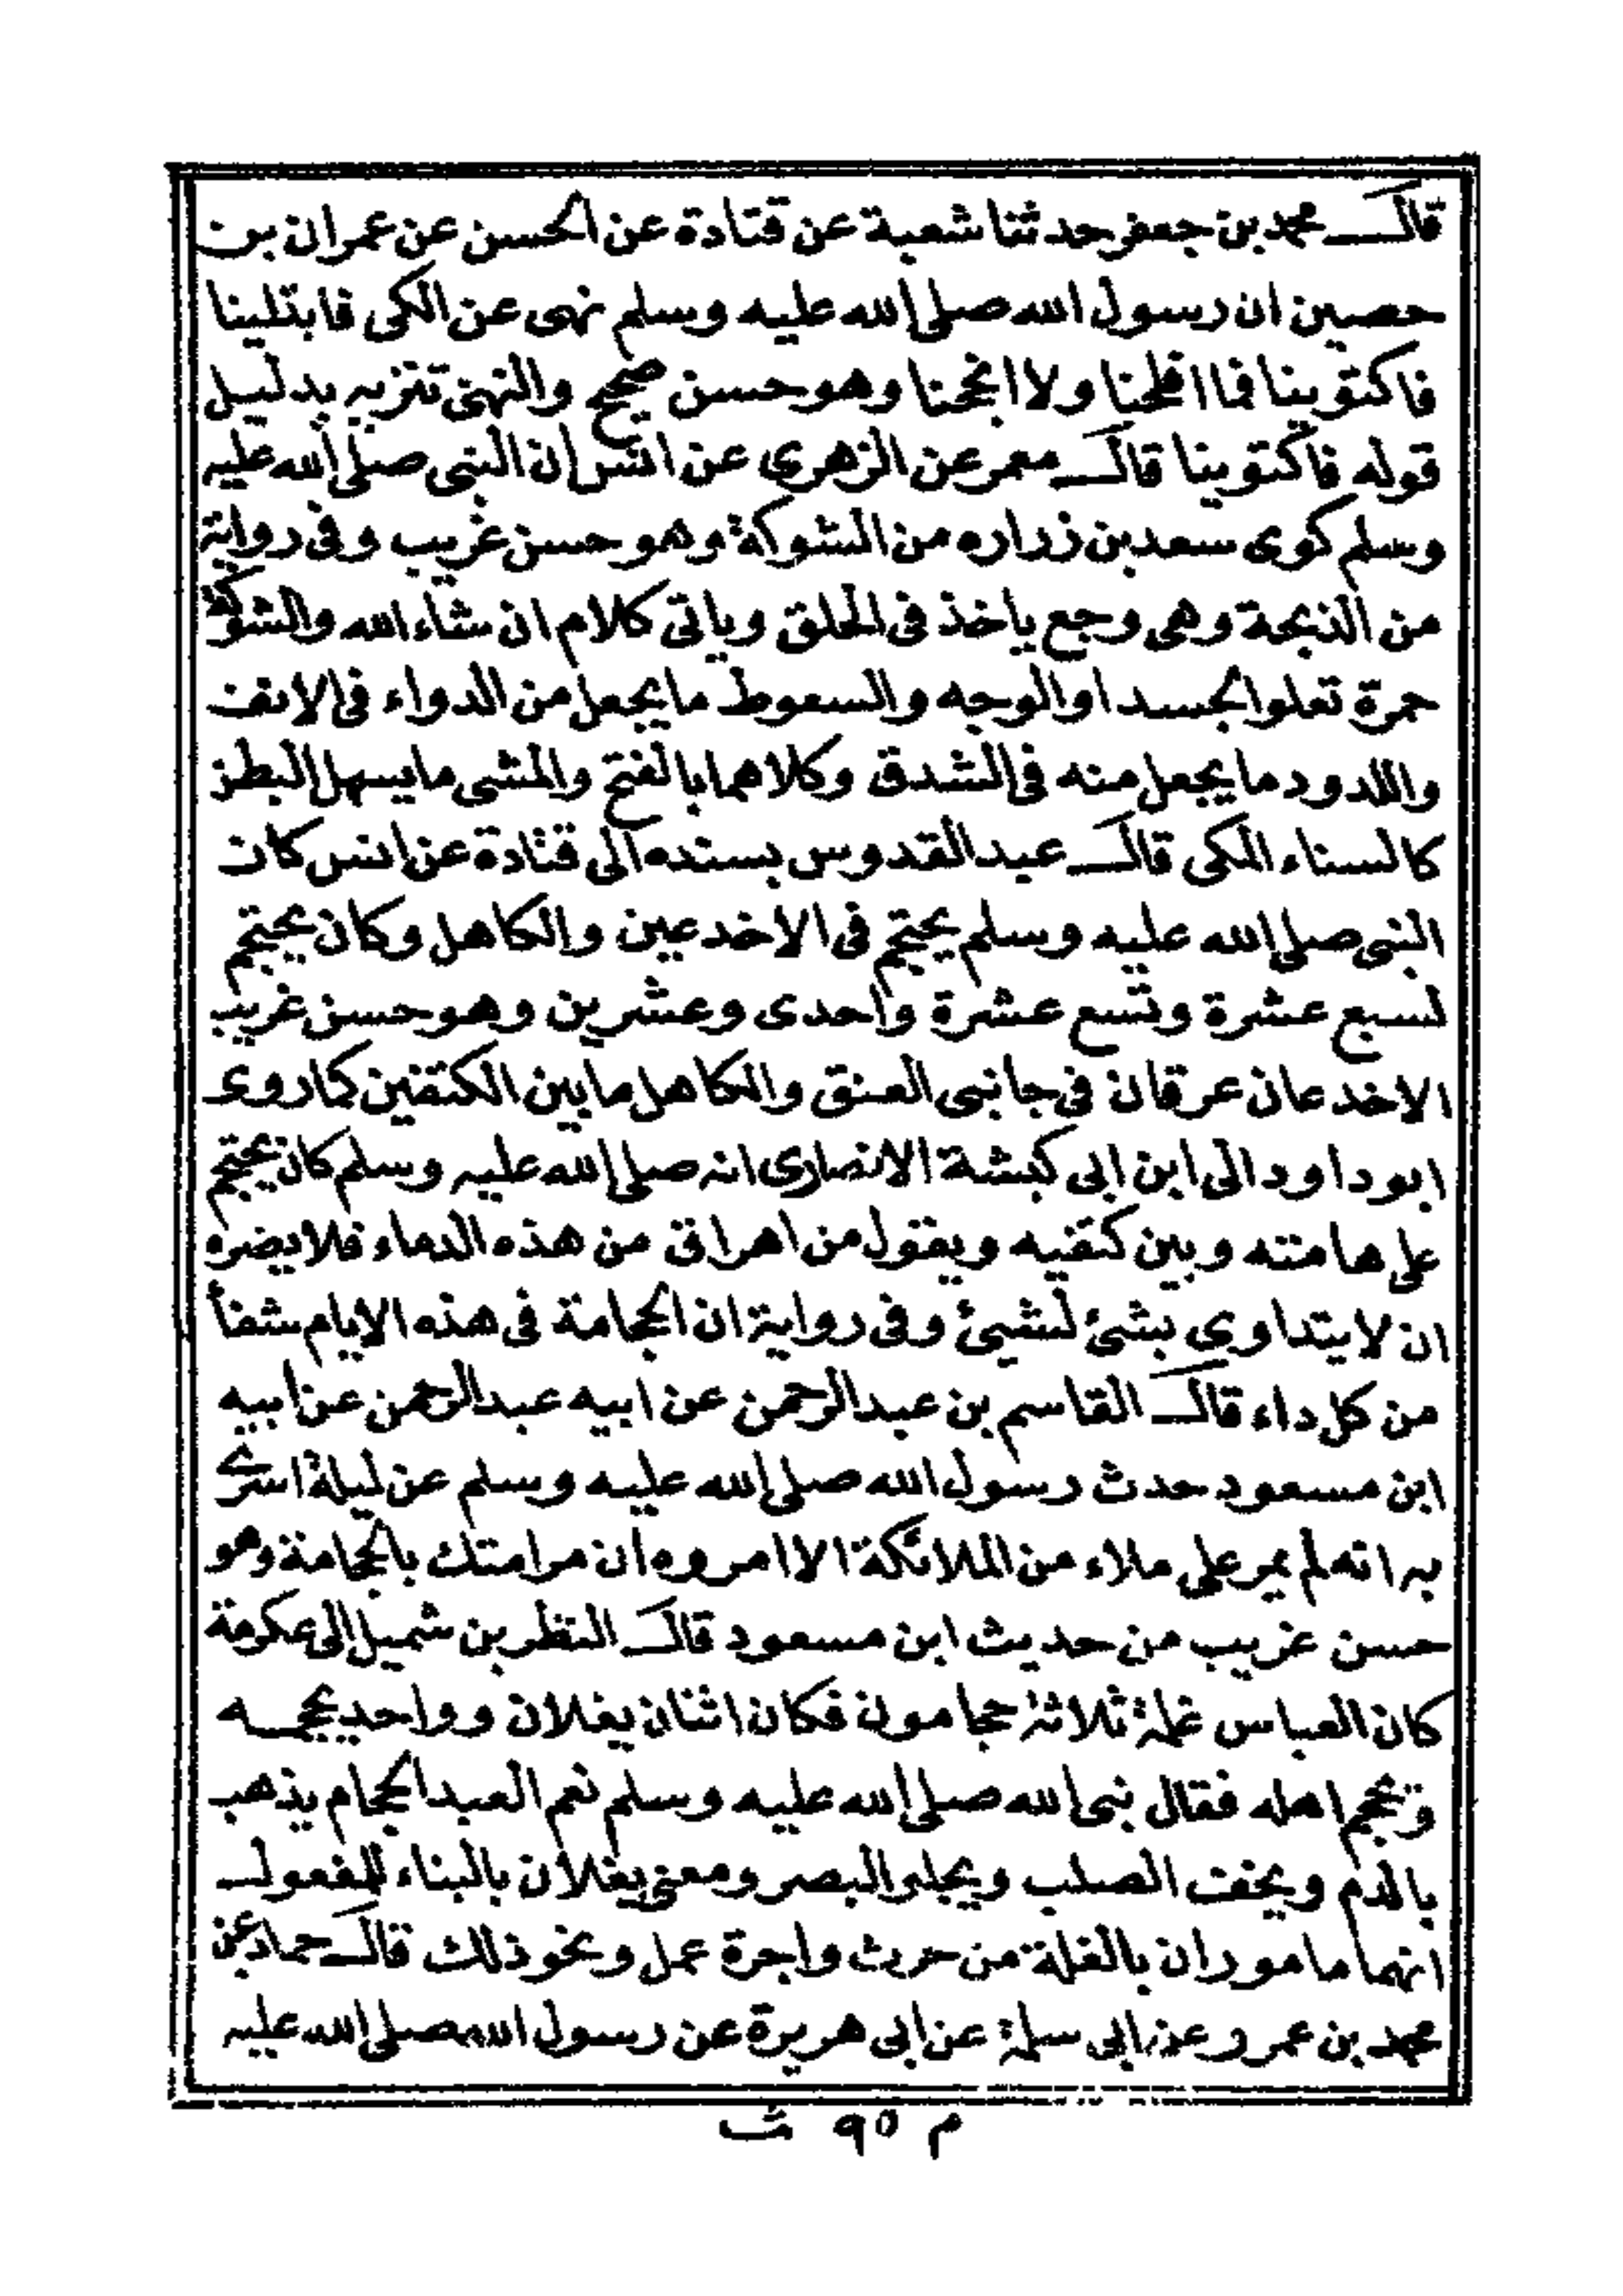 قال محمد بن جعفر حدثنا شعبة عن قتادة عن الحسن عن عمران بن
حصين ان رسول الله صلى الله عليه وسلم نهى عن الكى فابتلينا
فاكتوينا فما افلحنا ولا انجحنا وهو حسن صحيح والنهى تنزيه بدليل
قوله فاكتوينا قال معمر عن الزهرى عن انس ان النبى صلى الله عليه
وسلم كوى سعد بن زراره من الشوكة وهو حسن غريب وفى رواية
من الذبحة وهى وجع ياخذ فى الحلق وياتى كلام ان شاء الله والشوكة
حمرة تعلوا الجسد او الوجه والسعوط ما يجعل من الدواء فى الانف
واللدود ما يجعل منه فى الشدق وكلاهما بالفتح والمشى ما يسهل البطن
كالسناء المكى قال عبد القدوس بسنده الى قتادة عن انس كان
النبى صلى الله عليه وسلم يحتجم فى الاخدعين والكاهل وكان يحتجم
لسبع عشرة وتسع عشرة واحدى وعشرين وهو حسن غريب
الاخدعان عرقان فى جانبى العنق والكاهل ما بين الكتفين كما روى
ابو داود الى ابن ابى كبشة الانصارى انه صلى الله عليه وسلم كان يحتجم
على هامته وبين كتفيه ويقول من اهراق من هذه الدماء فلا يضره
ان لا يتداوى بشئ لشيئ وفى رواية ان الحجامة فى هذه الايام شفأ
من كل داء قال القاسم بن عبد الرحمن عن ابيه عبد الرحمن عن ابيه
ابن مسعود حدث رسول الله صلى الله عليه وسلم عن ليلة اسرى
به انه لم يمر على ملاء من الملائكة الا امروه ان مر امتك بالحجامة وهو
حسن غريب من حديث ابن مسعود قال النظر بن شميل الى عكرمة
كان العباس غلمة ثلاثة حجامون فكان اثنان يغلان وواحد يحجمه
وتحجم اهله فقال نبى الله صلى الله عليه وسلم نعم العبد الحجام يذهب
بالدم ويخفت الصلب ويجلو البصر ومعنى يغلان بالبناء للمفعول
انهما ماموران بالغلة من حرث واجرة عمل ونحو ذلك قال حماد عن
محمد بن عمرو عن ابى سلمة عن ابى هريرة عن رسول الله صلى الله عليه
م ٩٥ ت